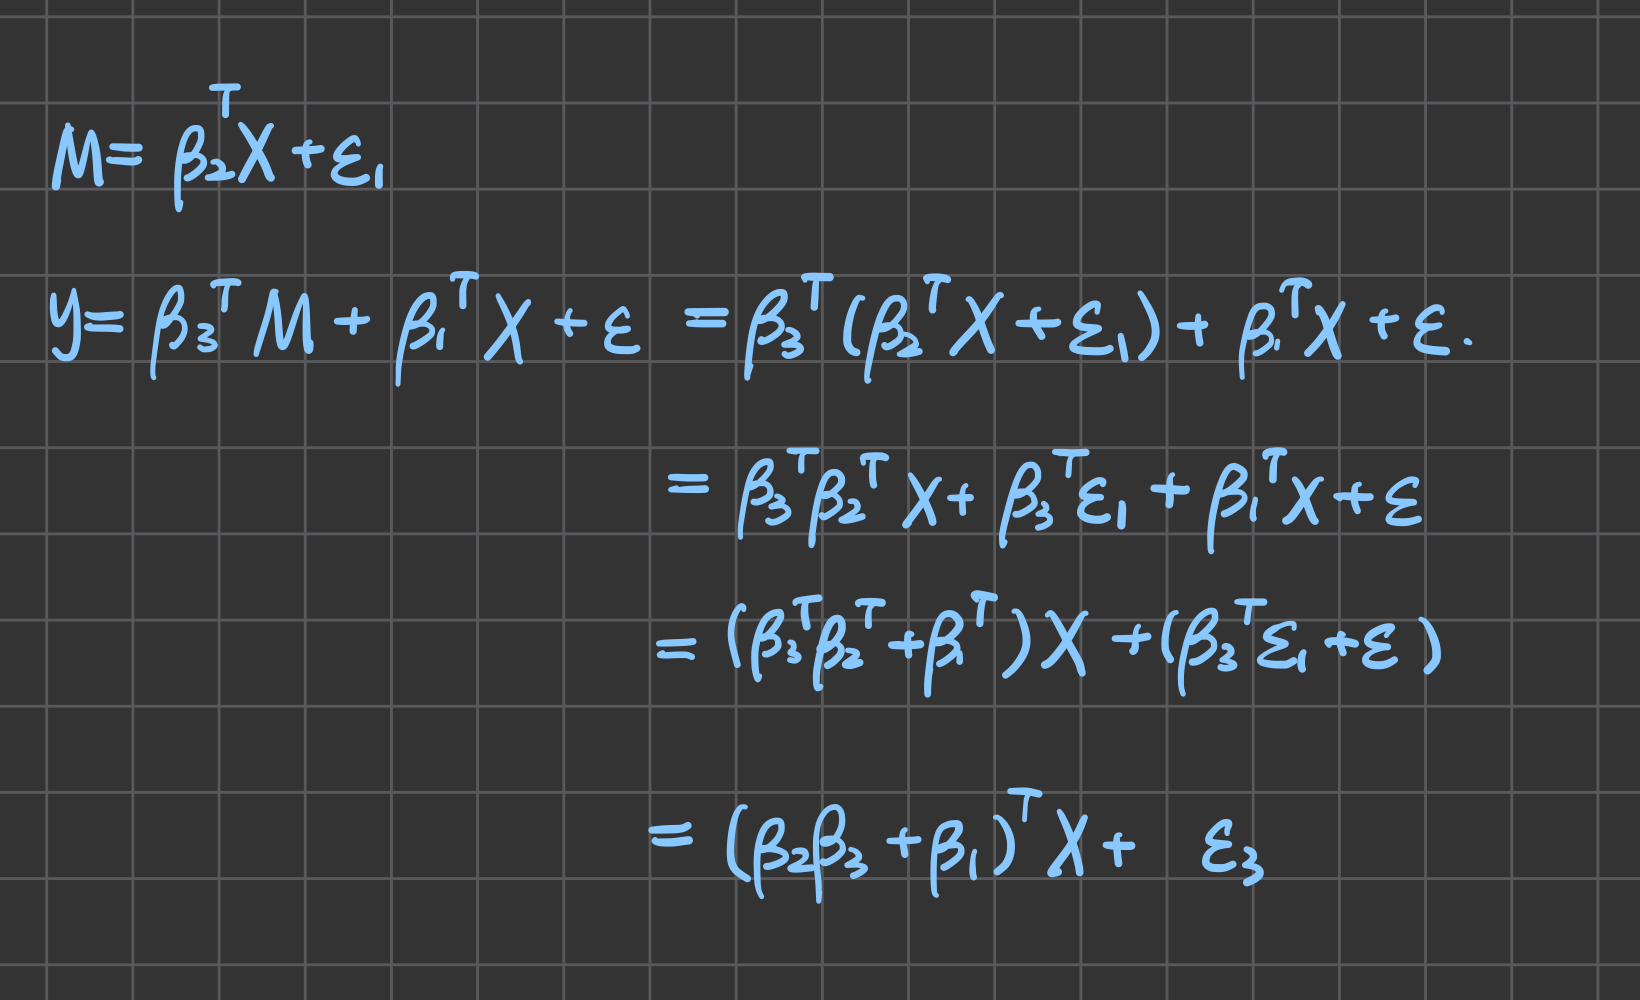 M = β₂ᵀX + ε₁
y = β₃ᵀM + β₁ᵀX + ε = β₃ᵀ(β₂ᵀX + ε₁) + β₁ᵀX + ε.
= β₃ᵀβ₂ᵀX + β₃ᵀε₁ + β₁ᵀX + ε
= (β₃ᵀβ₂ᵀ + β₁ᵀ)X + (β₃ᵀε₁ + ε)
= (β₂β₃ + β₁)ᵀX + ε₃